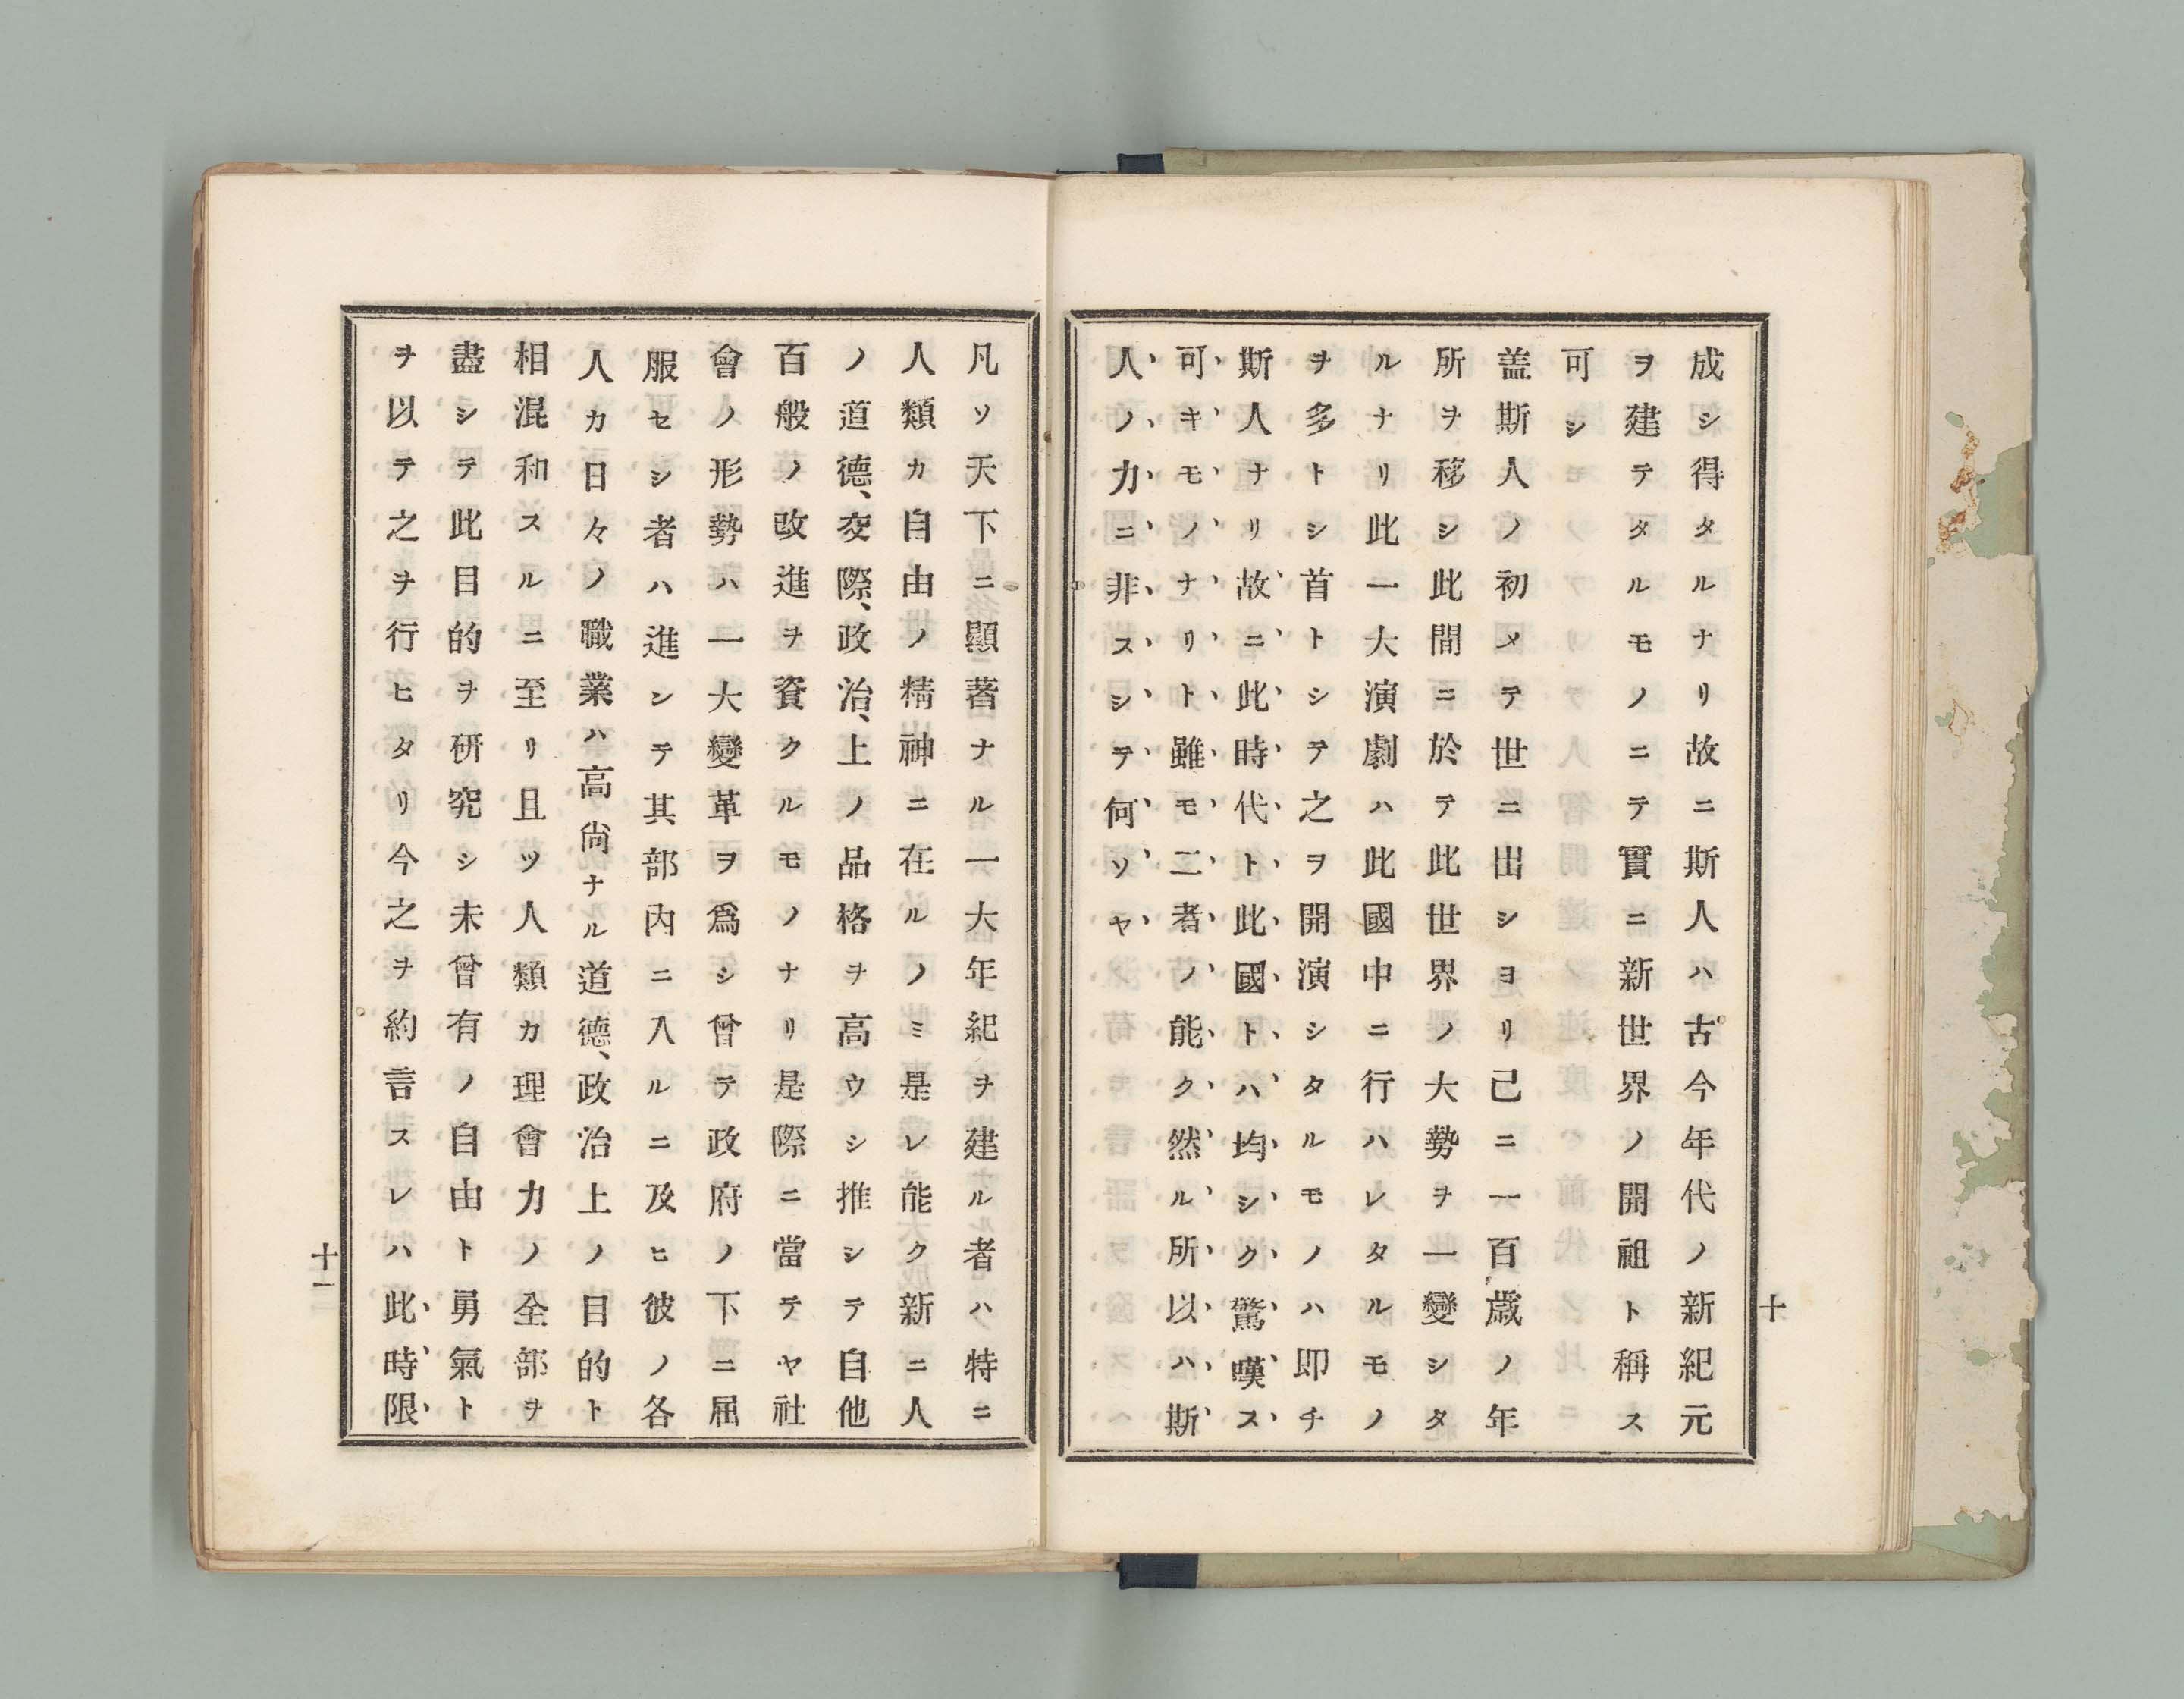 成シ得タルナリ故ニ斯人ハ古今年代ノ新紀元
ヲ建テタルモノニテ實ニ新世界ノ開祖ト稱ス
可シ
盖斯人ノ初メテ世ニ出シヨリ己ニ一百歳ノ年
所ヲ移シ此間ニ於テ此世界ノ大勢ヲ一變シタ
ルナリ此一大演劇ハ此國中ニ行ハレタルモノ
ヲ多トシ首トシテ之ヲ開演シタルモノハ即チ
斯人ナリ故ニ此時代ト此國トハ均シク驚嘆ス
可キモノナリト雖モ二者ノ能ク然ル所以ハ斯
人ノ力ニ非スシテ何ソヤ
十
凡ソ天下ニ顯著ナル一大年紀ヲ建ル者ハ特ニ
人類カ自由ノ精神ニ在ルノミ是レ能ク新ニ人
ノ道德、交際、政治、上ノ品格ヲ高ウシ推シテ自他
百般ノ改進ヲ資クルモノナリ是際ニ當テヤ社
會ノ形勢ハ一大變革ヲ爲シ曾テ政府ノ下ニ屈
服セシ者ハ進ンテ其部內ニ入ルニ及ヒ彼ノ各
人カ日々ノ職業ハ高尙ナル道德、政治上ノ目的ト
相混和スルニ至リ且ツ人類カ理會力ノ全部ヲ
盡シテ此目的ヲ研究シ未曾有ノ自由ト勇氣ト
ヲ以テ之ヲ行ヒタリ今之ヲ約言スレハ此時限
十一